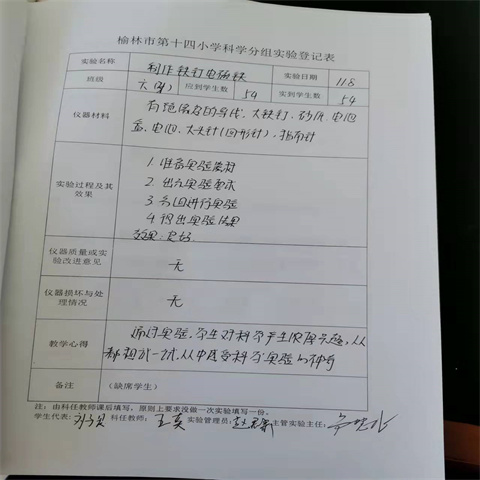 榆林市第十四小学科学分组实验登记表
实验名称 制作铁钉电磁铁 实验日期 11.8
班级 六(4) 应到学生数 54 实到学生数 54
仪器材料 有绝缘皮的导线、大铁钉、砂纸、电池
盒、电池、大头针(回形针)、指南针
实验过程及其效果 1.准备实验器材
2.出示实验要求
3.分组进行实验
4.得出实验结果
效果:良好
仪器质量或实验改进意见 无
仪器损坏与处理情况 无
教学心得 通过实验,学生对科学产生浓厚兴趣,从
都想试一试,从中感受科学实验的神奇
备注 (缺席学生)
注:由科任教师课后填写,原则上要求没做一次实验填写一份。
学生代表: 科任教师: 王英 实验管理员: 主管实验主任: